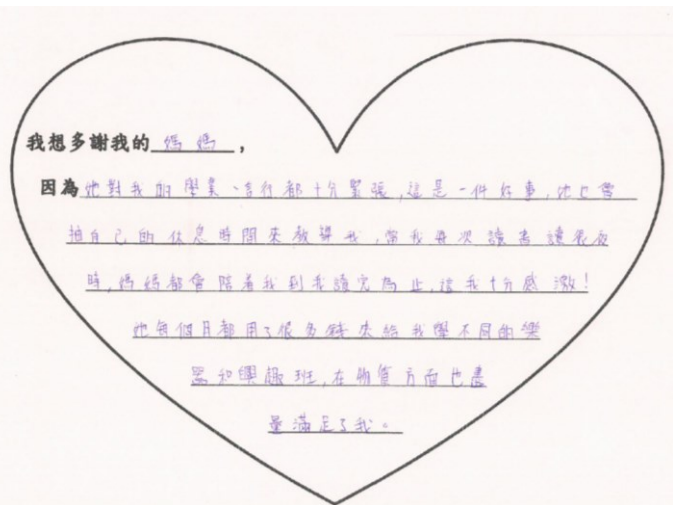 我想多謝我的媽媽，
因為她對我的學業、言行都十分緊張，這是一件好事，她也會
拍自己的休息時間來教導我，當我每次讀書讀很夜
時，媽媽都會陪着我到我讀完為止，這我十分感激！
她每個月都用了很多錢來給我學不同的樂
器和興趣班，在物質方面也盡
量滿足了我。